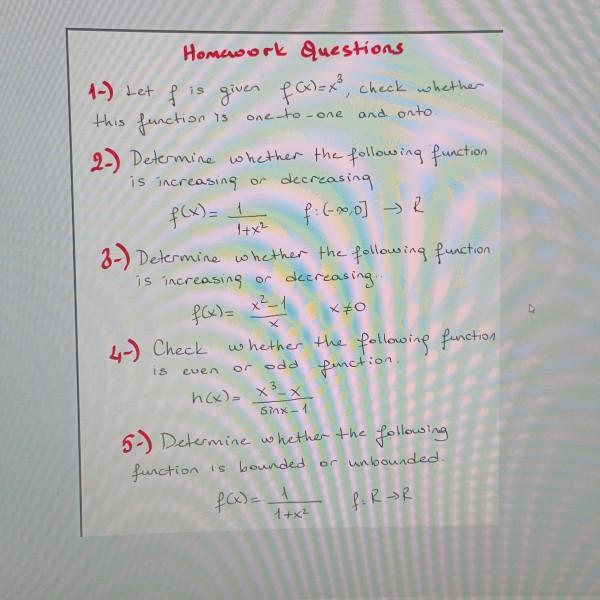 Homework Questions
1-) Let f is given f(x)=x³, check whether
this function is one-to-one and onto.
2-) Determine whether the following function
is increasing or decreasing
f(x)= 1/(1+x²) f:(-∞,0] → R
3-) Determine whether the following function
is increasing or decreasing..
f(x)= (x²-1)/x x≠0
4-) Check whether the following function
is even or odd function.
h(x)= (x³-x)/(sinx-1)
5-) Determine whether the following
function is bounded or unbounded.
f(x)= 1/(1+x²) f:R→R